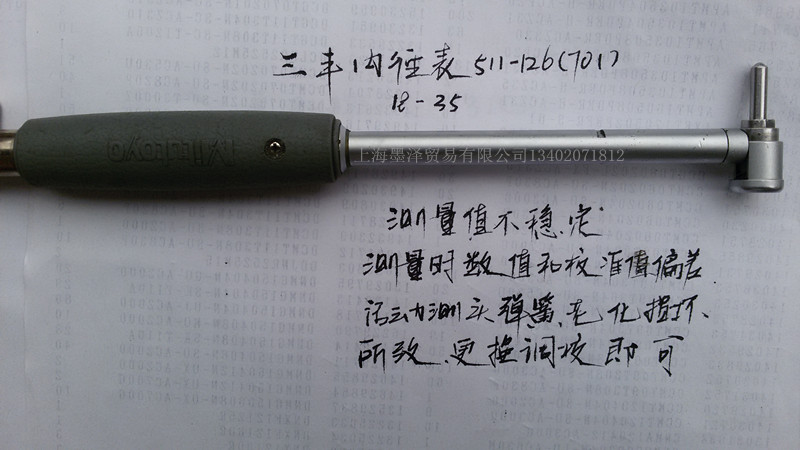 三丰内径表511-126(701)
18-35
Mitutoyo
上海墨泽贸易有限公司13402071812
测量值不稳定
测量时数值和校准值偏差
活动测头弹簧老化损坏
所致.更换调校即可